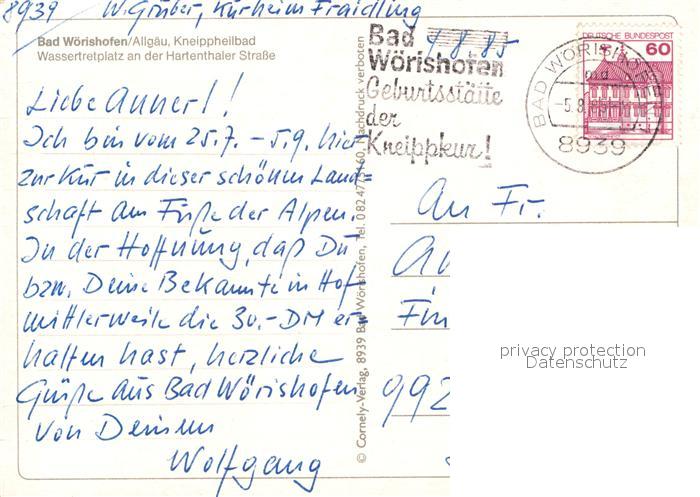 8939 W. Gruber, Kurheim Fraidling
Bad Wörishofen/Allgäu, Kneippheilbad
Wassertretplatz an der Hartenthaler Straße
Liebe Annerl!
Ich bin vom 25.7. – 5.9. hier
zur Kur in dieser schönen Land=
schaft am Fuße der Alpen.
In der Hoffnung, daß Du
bzw. Deine Bekannte in Hof
mittlerweile die 30.- DM er=
halten hast, herzliche
Grüße aus Bad Wörishofen
von Deinem
Wolfgang
© Cornely-Verlag, 8939 Bad Wörishofen, Tel. 0 82 47/ 51 60, Nachdruck verboten
Bad
Wörishofen
Geburtsstätte
der
Kneippkur!
9.8.85
DEUTSCHE BUNDESPOST
60
BAD WÖRISHOFEN
-5.8.
8939
An Fr.
992
privacy protection
Datenschutz